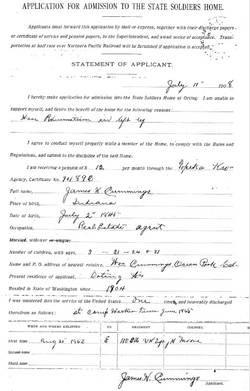 APPLICATION FOR ADMISSION TO THE STATE SOLDIERS HOME.
Applicants must forward this application by mail or express, together with their discharge papers
or certificate of service and pension papers, to the Superintendent, and await notice of acceptance. Trans-
portation at half rate over Northern Pacific Railroad will be furnished if application is accepted.
STATEMENT OF APPLICANT.
July 11 1908
I hereby make application for admission into the State Soldiers Home at Orting. I am unable to
support myself, and desire the benefit of the home for the following reasons
Have Rheumatism in left leg
I agree to conduct myself properly while a member of the Home, to comply with the Rules and
Regulations, and submit to the discipline of the said Home.
I am receiving a pension of $ 12 per month through the Topeka Kan
Agency, Certificate No.
Full name, James H. Cummings
Place of birth, Indiana
Date of birth, July 2
Occupation, Real Estate agent
Married, widower
Number of children, ages, 3 - 21 - 24 & 31
Name and P. O. address of nearest relative, Cummings Ocean Park Cal
Present residence of applicant,
Resided in State of Washington since 1904
I was mustered into the service of the United States, One times, and honorably discharged
therefrom as follows: at Camp Harker Tenn June 1865
WHEN AND WHERE ENLISTED
CO.
REGIMENT
COLONEL
1st Aug 1862
James H. Cummings